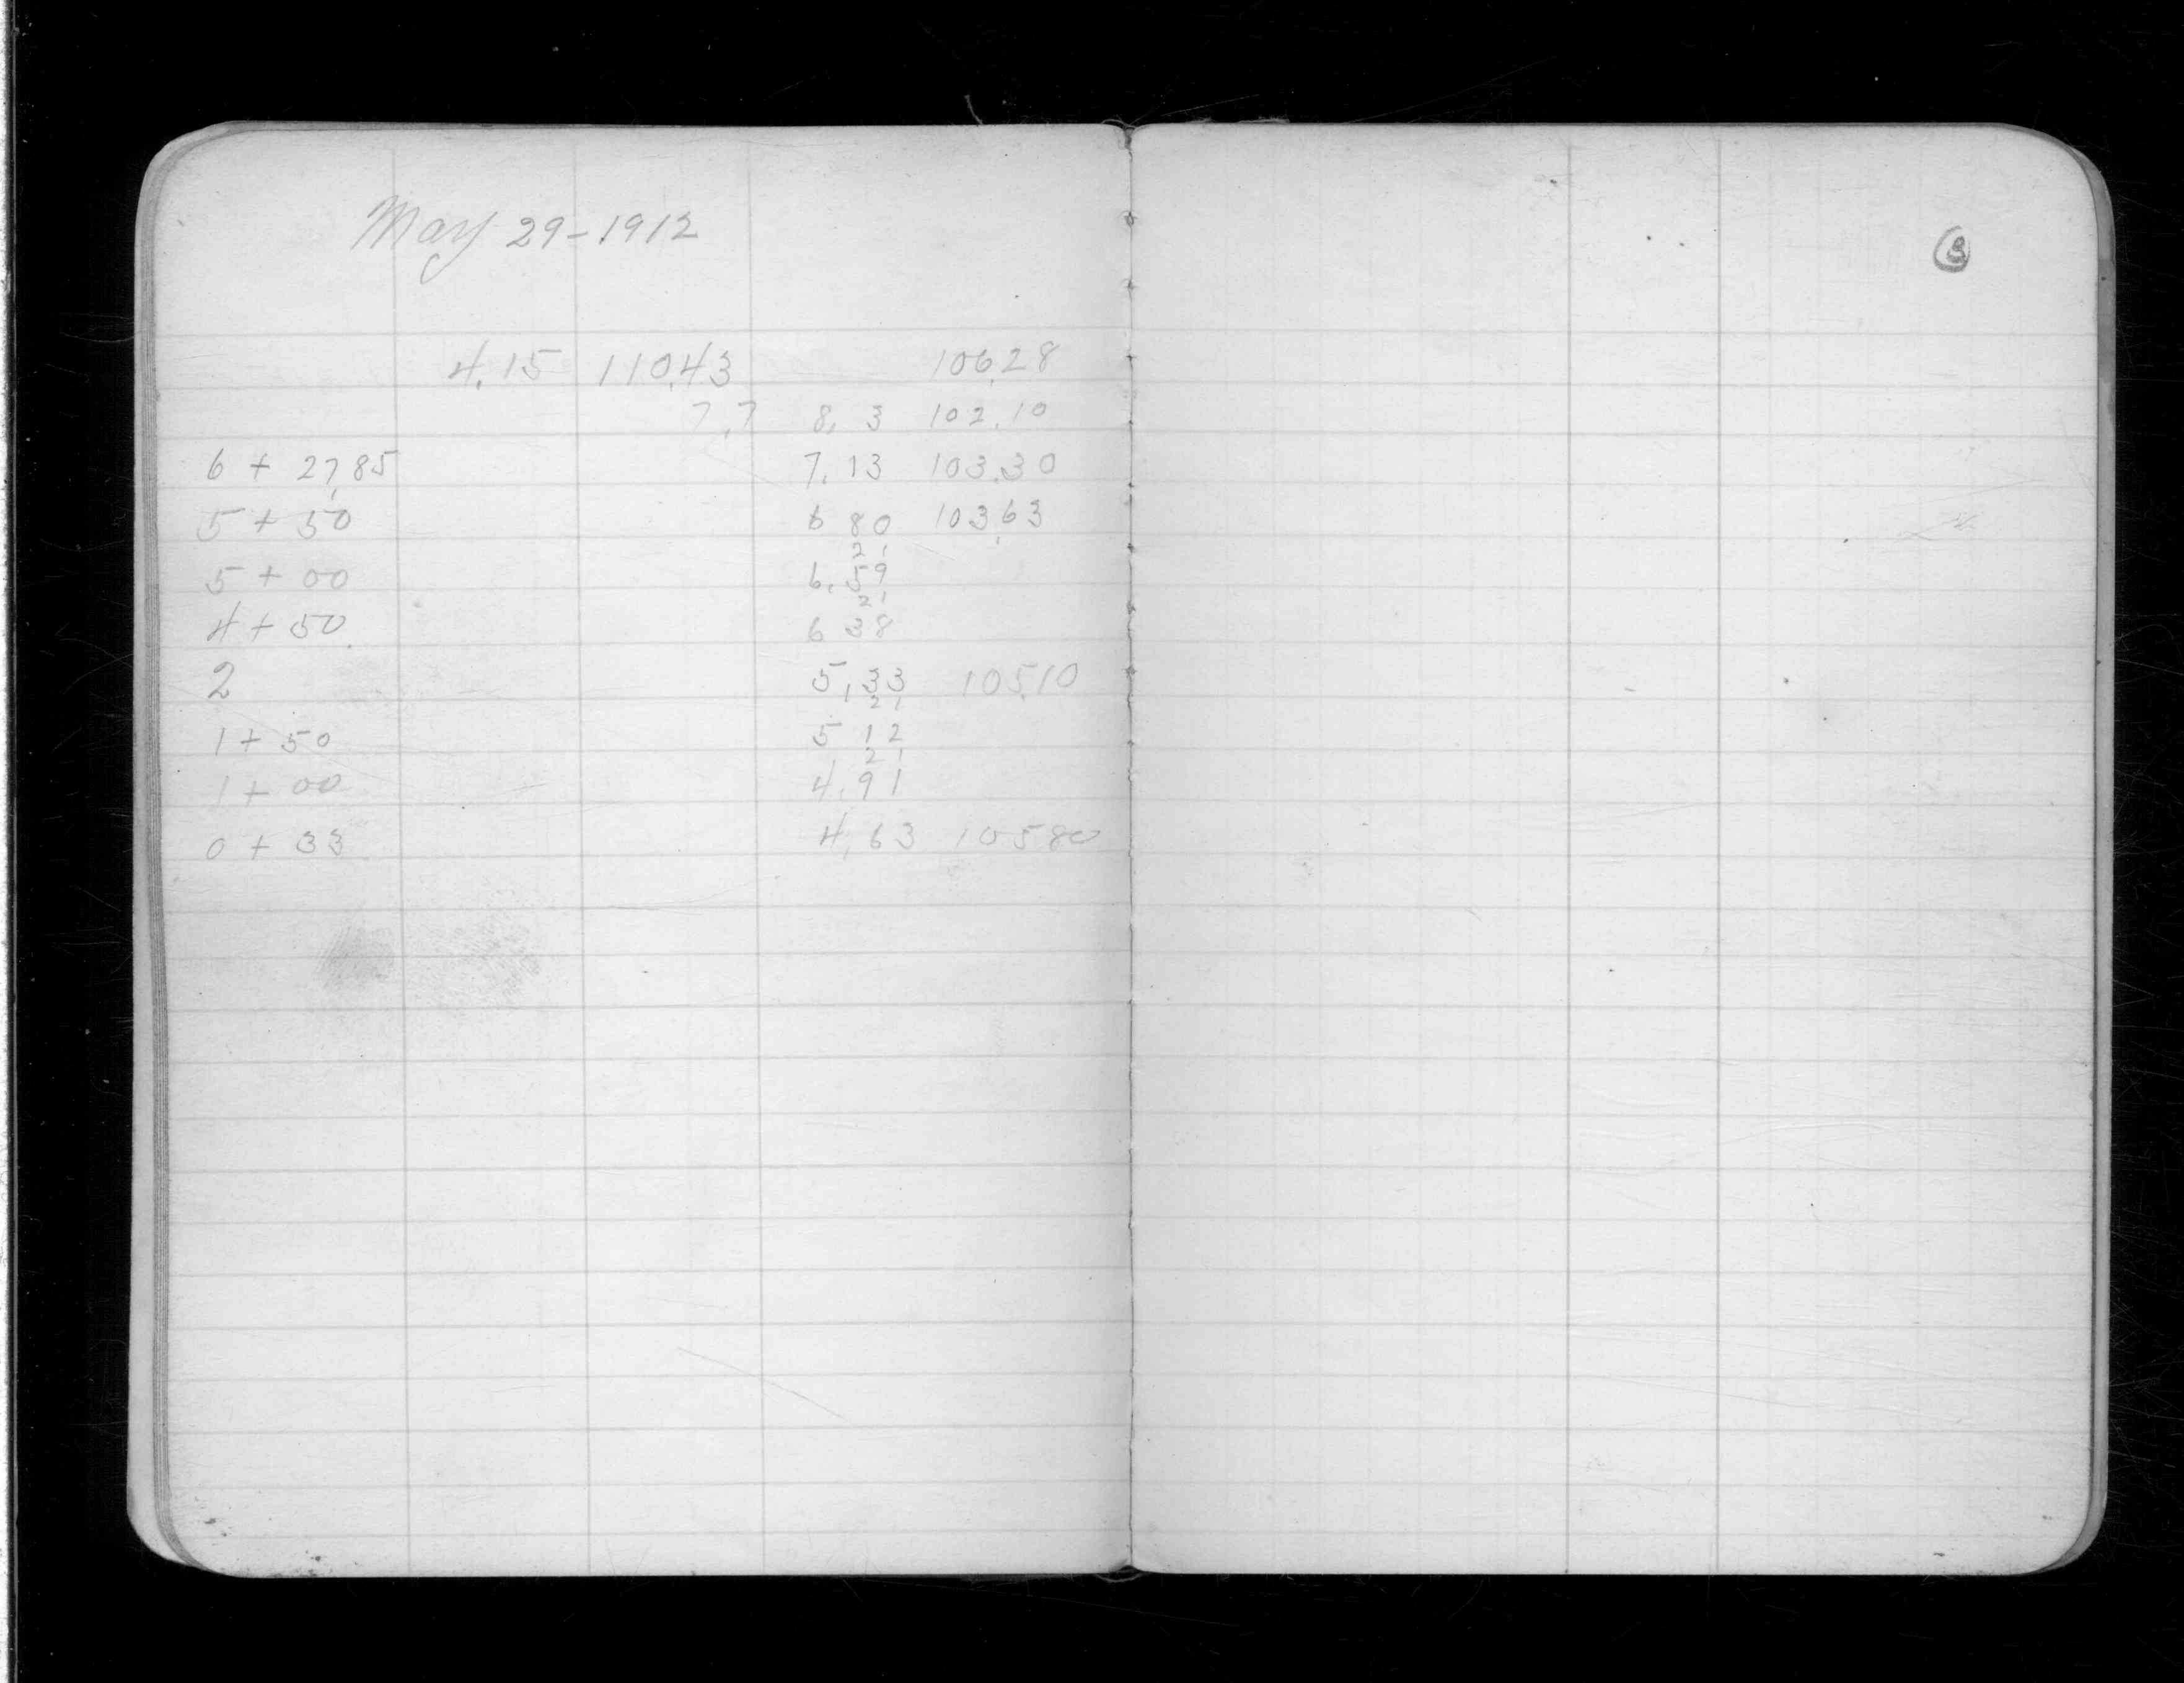 May 29-1912
3
4.15 110.43 106.28
7.7 8.3 102.10
6 + 27.85 7.13 103.30
5 + 50 6 80 103.63
21
5 + 00 6.59
21
4 + 50 6 38
2 5.33 105.10
21
1 + 50 5 12
21
1 + 00 4.91
0 + 33 4.63 105 80